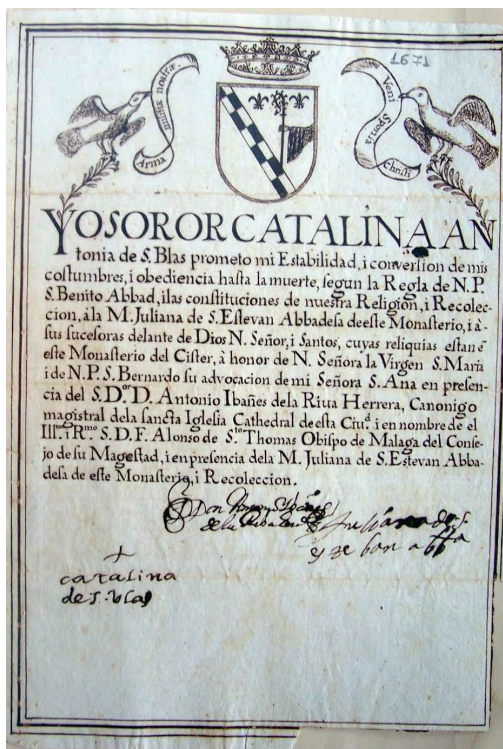 1671
Arma militiæ nostræ.
Veni Sponsa Christi
YO SOROR CATALINA AN
tonia de S. Blas prometo mi Estabilidad, i conversion de mis
costumbres, i obediencia hasta la muerte, segun la Regla de N. P.
S. Benito Abbad, i las constituciones de nuestra Religion, i Recolec-
cion, à la M. Juliana de S. Estevan Abbadesa de este Monasterio, i à
sus sucesoras delante de Dios N. Señor, i Santos, cuyas reliquias estan ē
este Monasterio del Cister, à honor de N. Señora la Virgen S. Maria
i de N. P. S. Bernardo su advocacion de mi Señora S. Ana en presen-
cia del S. D.or D. Antonio Ibañes de la Riua Herrera, Canonigo
magistral de la sancta Iglesia Cathedral de esta Ciu.d i en nombre de el
Ill.i R.mo S. D. F. Alonso de S.to Thomas Obispo de Malaga del Conse-
jo de su Magestad, i en presencia de la M. Juliana de S. Estevan Abba-
desa de este Monasterio, i Recoleccion.
Don Antonio Ybañes
de la Riba Herrera
Juliana de s.
esteban abba
catalina
de s. blas